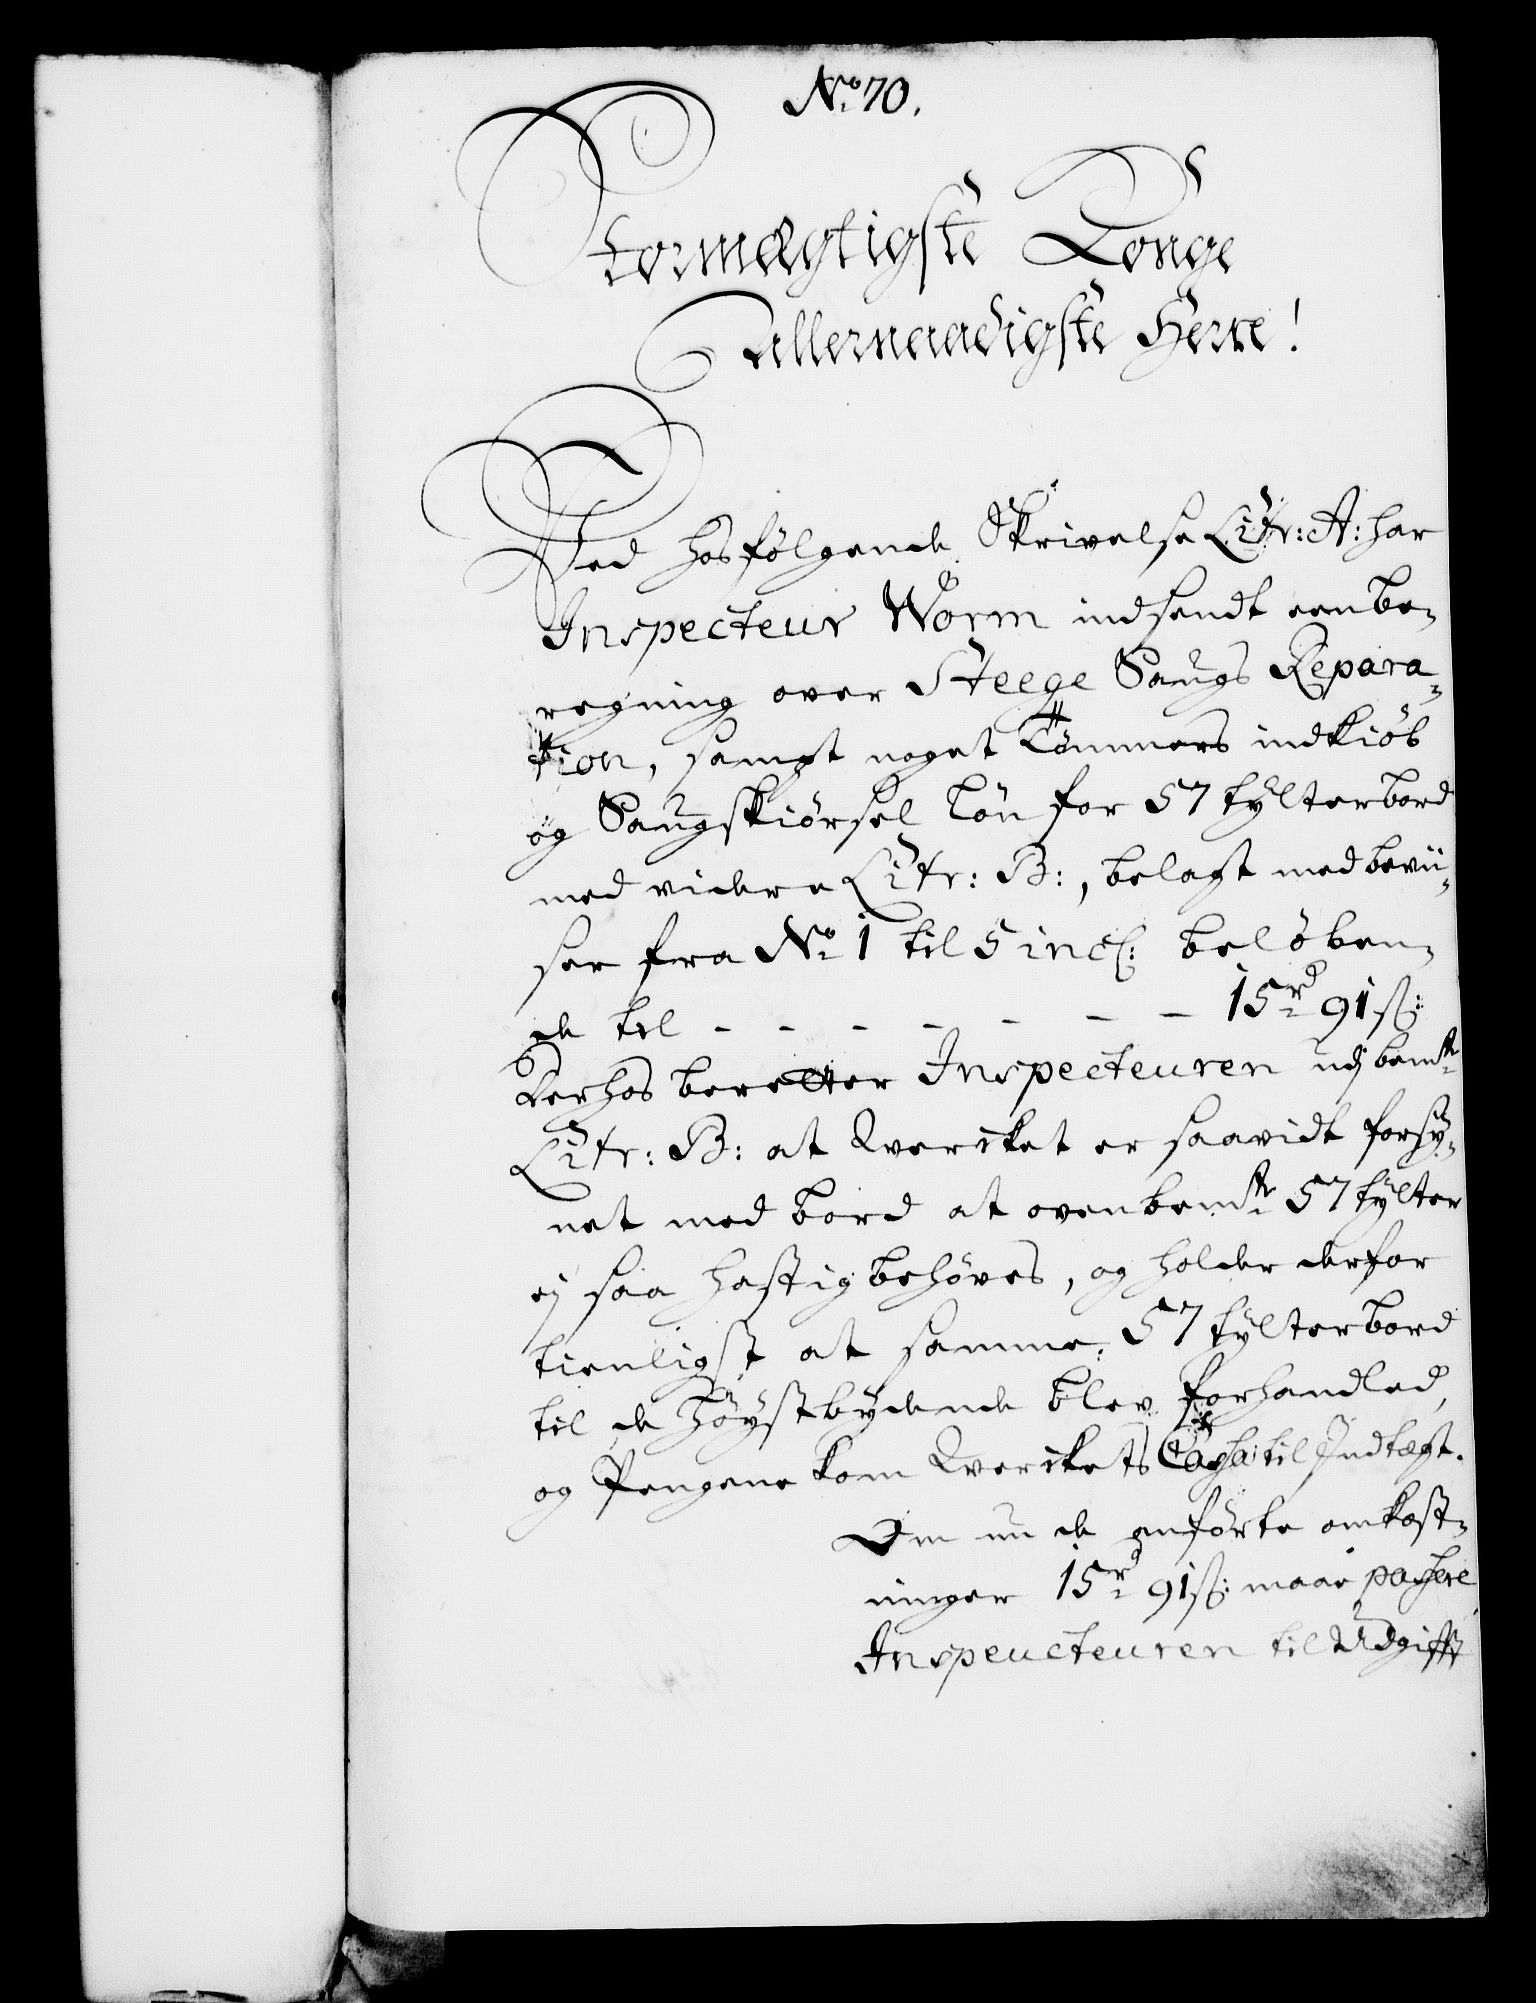 No 70.
Stormægtigste Konge
Allernaadigste Herre!
Ved hosfølgende Skrivelse Litr: A: har
Inspecteur Worm indsendt een be-
regning over Steege Saugs Repara-
tion, sampt noget Tømmers indkiøb
og Saugskiørsel løn for 57 tÿlter bord
med videre Litr: B:, belagt med bevii-
ser fra No 1 til 5 incl: beløben-
de til - - - - - - - 15rd 91ß:
Derhos beretter Inspecteuren udj bemte
Litr: B: at Kverket er saavidt forsÿ-
net med bord at ovenbemte 57 tÿlter
ej saa hastig behøves, og holder derfor
tienligst at samme 57 tÿlter bord
til de høÿstbÿdende blev forhandled,
og Pengene kom Kverkets Cassa til Indtægt.
Om nu de anførte omkost-
ninger 15rd 91ß: maae passere
Inspeucteuren til Udgifft